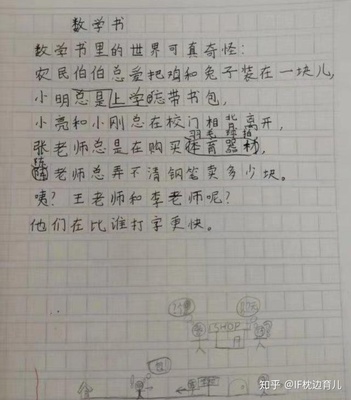 数学书
数学书里的世界可真奇怪：
农民伯伯总爱把鸡和兔子装在一块儿，
小明总是上学忘带书包，
小亮和小刚总在校门相背离开，
张老师总是在购买体育器材，
羽毛球拍
陈老师总弄不清钢笔卖多少块。
咦？王老师和李老师呢？
他们在比谁打字更快。
SHOP
知乎 @IF枕边育儿